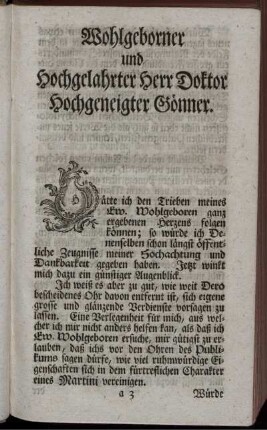 Wohlgeborner
und
Hochgelahrter Herr Doktor
Hochgeneigter Gönner.
Hätte ich den Trieben meines
Ew. Wohlgeboren ganz
ergebenen Herzens folgen
können; so würde ich De-
nenselben schon längst öffent-
liche Zeugnisse meiner Hochachtung und
Dankbarkeit gegeben haben. Jetzt winkt
mich dazu ein günstiger Augenblick.
Ich weiß es aber zu gut, wie weit Dero
bescheidenes Ohr davon entfernt ist, sich eigene
grosse und glänzende Verdienste vorsagen zu
lassen. Eine Verlegenheit für mich, aus wel-
cher ich mir nicht anders helfen kan, als daß ich
Ew. Wohlgeboren ersuche, mir gütigst zu er-
lauben, daß ichs vor den Ohren des Publi-
kums sagen dürfe, wie viel ruhmwürdige Ei-
genschaften sich in dem fürtreflichen Charakter
eines Martini vereinigen.
a 3 Würde